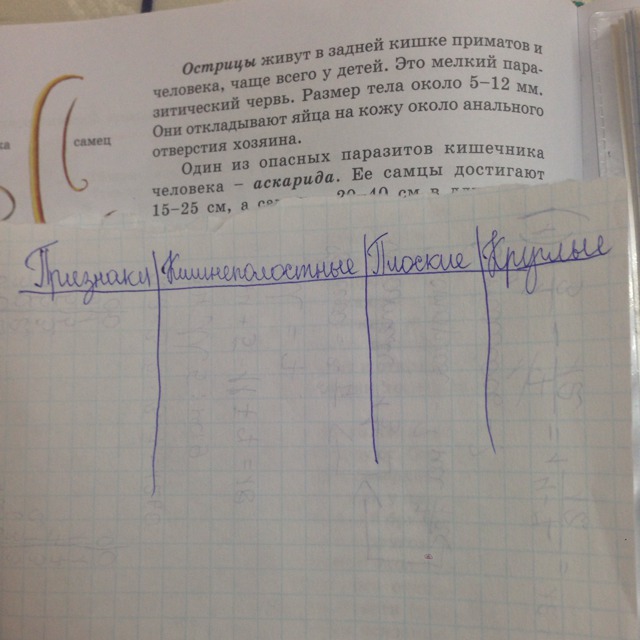 Острицы живут в задней кишке приматов и
человека, чаще всего у детей. Это мелкий пара-
зитический червь. Размер тела около 5–12 мм.
Они откладывают яйца на кожу около анального
отверстия хозяина.
самец
Один из опасных паразитов кишечника
человека – аскарида. Ее самцы достигают
15–25 см, а 20–40 см в
Признаки Кишнеполостные Плоские Круглые